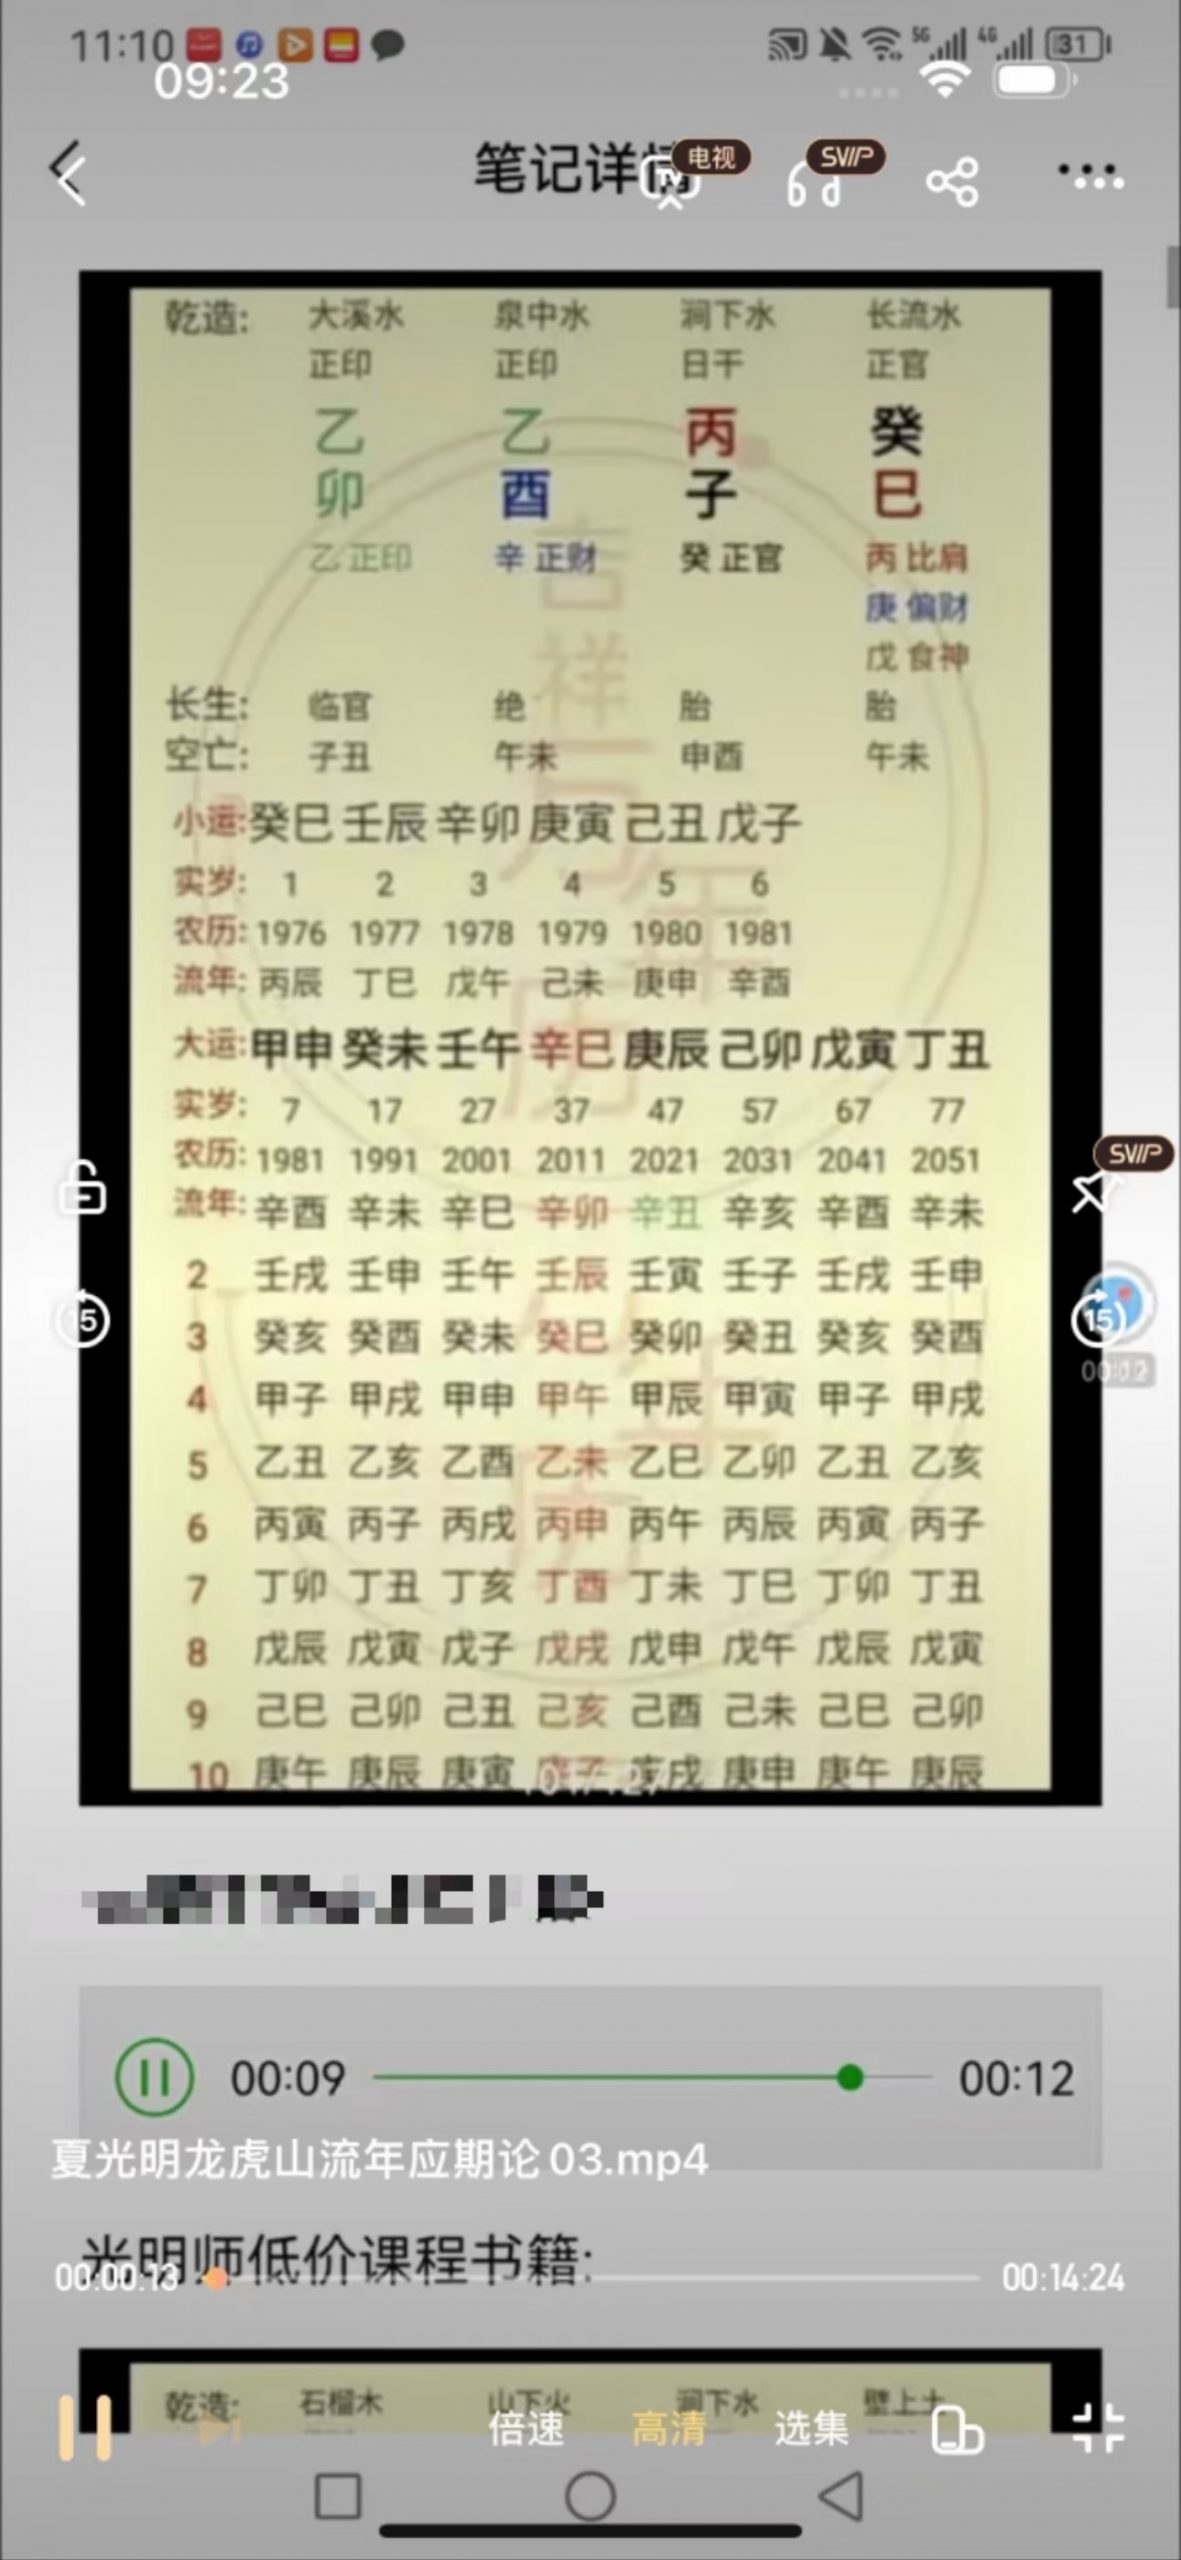 11:10 5G 4G 31
09:23
笔记详情 电视 SVIP
乾造: 大溪水 泉中水 涧下水 长流水
正印 正印 日干 正官
乙 乙 丙 癸
卯 酉 子 巳
乙 正印 辛 正财 癸 正官 丙 比肩
庚 偏财
戊 食神
长生: 临官 绝 胎 胎
空亡: 子丑 午未 申酉 午未
小运: 癸巳 壬辰 辛卯 庚寅 己丑 戊子
实岁: 1 2 3 4 5 6
农历: 1976 1977 1978 1979 1980 1981
流年: 丙辰 丁巳 戊午 己未 庚申 辛酉
大运: 甲申 癸未 壬午 辛巳 庚辰 己卯 戊寅 丁丑
实岁: 7 17 27 37 47 57 67 77
农历: 1981 1991 2001 2011 2021 2031 2041 2051
SVIP
流年: 辛酉 辛未 辛巳 辛卯 辛丑 辛亥 辛酉 辛未
2 壬戌 壬申 壬午 壬辰 壬寅 壬子 壬戌 壬申
15 3 癸亥 癸酉 癸未 癸巳 癸卯 癸丑 癸亥 癸酉 15
00:12
4 甲子 甲戌 甲申 甲午 甲辰 甲寅 甲子 甲戌
5 乙丑 乙亥 乙酉 乙未 乙巳 乙卯 乙丑 乙亥
6 丙寅 丙子 丙戌 丙申 丙午 丙辰 丙寅 丙子
7 丁卯 丁丑 丁亥 丁酉 丁未 丁巳 丁卯 丁丑
8 戊辰 戊寅 戊子 戊戌 戊申 戊午 戊辰 戊寅
9 己巳 己卯 己丑 己亥 己酉 己未 己巳 己卯
10 庚午 庚辰 庚寅 庚子 庚戌 庚申 庚午 庚辰
吉祥万年历
00:09 00:12
夏光明龙虎山流年应期论03.mp4
光明师低价课程书籍:
00:00:13 00:14:24
乾造: 石榴木 山下火 涧下水 壁上土
倍速 高清 选集